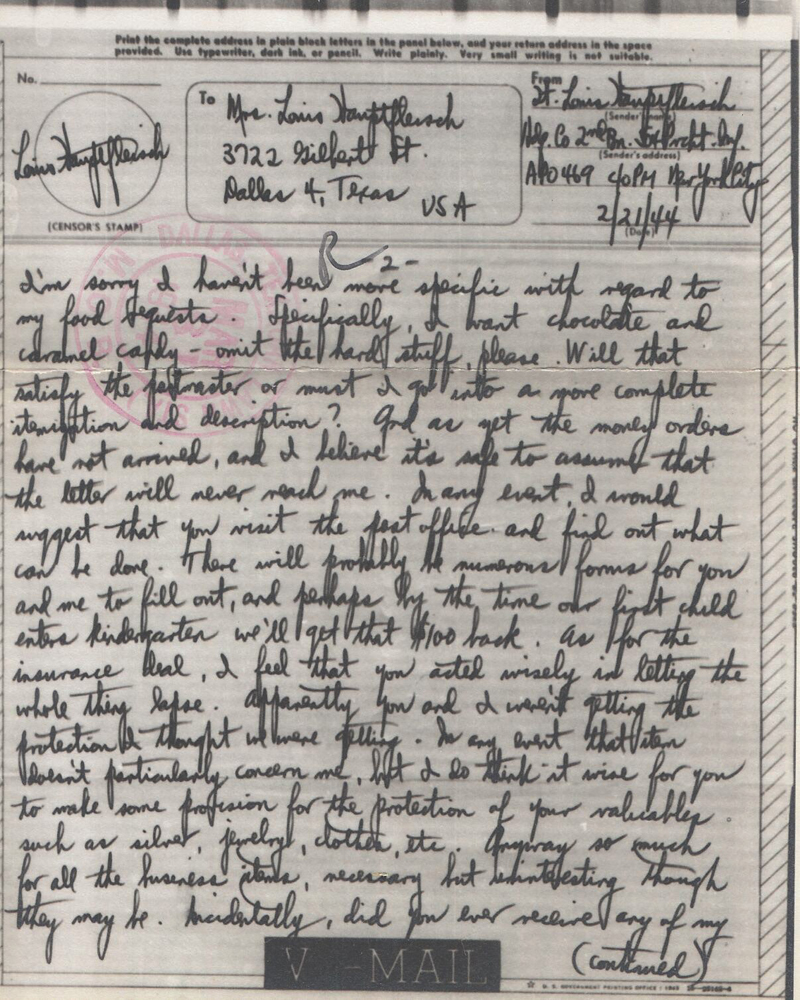 Print the complete address in plain block letters in the panel below, and your return address in the space
provided. Use typewriter, dark ink, or pencil. Write plainly. Very small writing is not suitable.
No.
Louis Hauptfleisch
(CENSOR'S STAMP)
To
Mrs. Louis Hauptfleisch
3722 Gilbert St.
Dallas 4, Texas
USA
From
Lt. Louis Hauptfleisch
(Sender's name)
Hdq. Co 2nd Bn. 504 Prcht. Inf.
(Sender's address)
APO 469 c/o PM New York City
2/21/44
(Date)
-2-
I'm sorry I haven't been more specific with regard to
my food requests. Specifically, I want chocolate and
caramel candy - omit the hard stuff, please. Will that
satisfy the postmaster or must I go into a more complete
itemization and description? And as yet the money orders
have not arrived, and I believe it's safe to assume that
the letter will never reach me. In any event, I would
suggest that you visit the post office and find out what
can be done. There will probably be numerous forms for you
and me to fill out, and perhaps by the time our first child
enters kindergarten we'll get that $100 back. As for the
insurance deal, I feel that you acted wisely in letting the
whole thing lapse. Apparently you and I weren't getting the
protection I thought we were getting. In any event that item
doesn't particularly concern me, but I do think it wise for you
to make some provision for the protection of your valuables
such as silver, jewelry, clothes, etc. Anyway so much
for all the business items, necessary but uninteresting though
they may be. Incidentally, did you ever receive any of my
(continued)
V-MAIL
U. S. GOVERNMENT PRINTING OFFICE : 1943